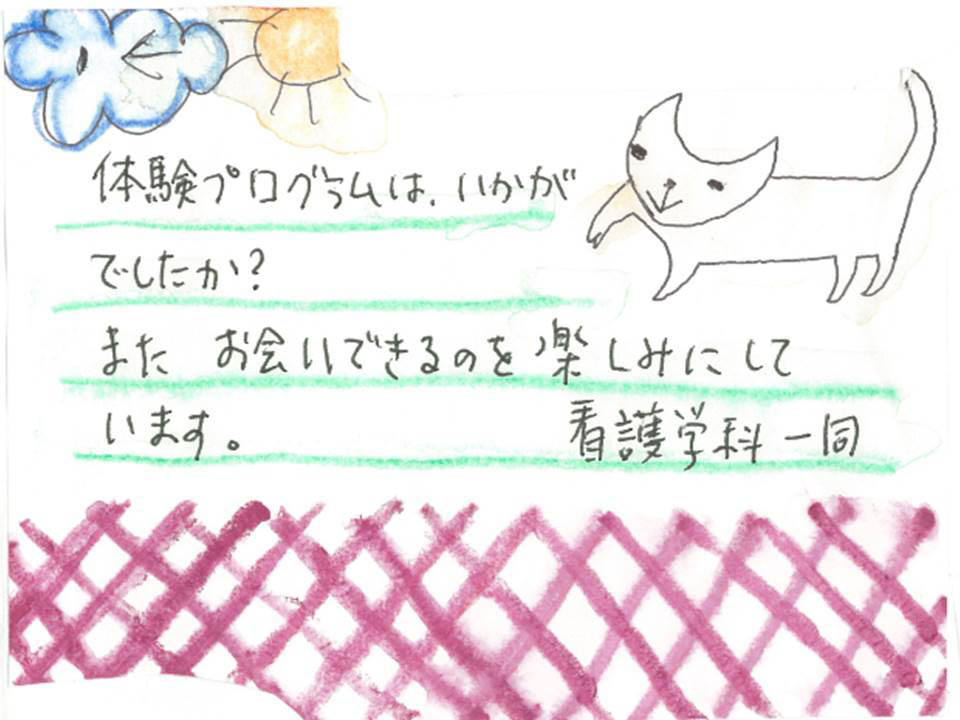 体験プログラムは、いかが
でしたか?
また お会いできるのを楽しみにして
います。 看護学科一同